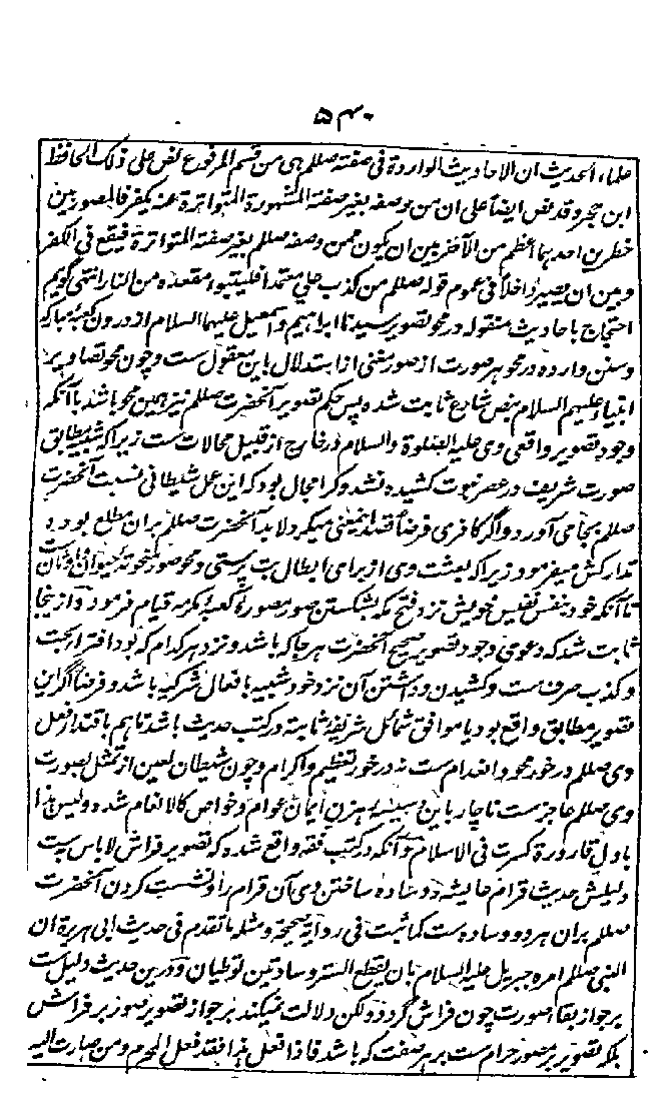 ۵۴۰
علماء الحدیث ان الاحادیث الواردة فی صفته صللم هی من قسم المرفوع نص علی ذلک الحافظ
ابن حجر و قد نص ایضاً علی ان من وصفه بغیر صفته المشهورة المتواترة عنه یکفر فالمصور بین
خطرین احدهما اعظم من الآخر بین ان یکون ممن وصفه صللم بغیر صفته المتواترة فیقع فی الکفر
و بین ان یصیر داخلاً فی عموم قوله صللم من کذب علی متعمدا فلیتبوأ مقعده من النار انتهی گویم
احتجاج باحادیث منقوله در محو تصویر سیدنا ابراهیم و اسمعیل علیهما السلام از درون کعبه مبارکه
و سنن وارده در محو هر صورت از صور مغنی از استدلال باین معقول ست و چون محو تصاویر
انبیاء علیهم السلام بنص شارع ثابت شده پس حکم تصویر آنحضرت صللم نیز همین محو باشد با آنکه
وجود تصویر واقعی وی علیه الصلوة و السلام در خارج از قبیل محالات ست زیرا که شبیه مطابق
صورت شریف در عصر نبوت کشیده نشد و کرا مجال بود که این عمل شیطانی نسبت آنحضرت
صللم بجا می آورد و اگر کافری فرضاً قصد اینمعنی میکرد لابد آنحضرت صللم بران مطلع بوده
تدارکش میفرمود زیرا که بعثت وی از برای ابطال بت پرستی و محو صور منحوته حیوان و اوثان
تا آنکه خود بنفس نفیس خویش نزد فتح مکه بشکستن صور مصوره کعبه مکرمه قیام فرمود و از ینجا
ثابت شد که دعوی وجود تصویر صحیح آنحضرت هر جا که باشد و نزد هر کدام که بود افترای بحت
و کذب صرف ست و کشیدن و داشتن آن نزد خود شبیه بافعال شرکیه باشد و فرضاً اگر این
تصویر مطابق واقع بود یا موافق شمائل شریفه ثابته در کتب حدیث باشد تا هم باقتداء فعل
وی صللم در خور محو و انعدام ست نه در خور تعظیم و اکرام و چون شیطان لعین از تمثل بصورت
وی صللم عاجز ست ناچار باین رهزن ایمان عوام و خواص کالانعام شده و لیس هذا
باول قارورة کسرت فی الاسلام و آنکه در کتب فقه واقع شده که تصویر فراش لا باس ست
دلیلش حدیث قرام عایشه و دو وساده ساختن وی آن قرام را و نشست کردن آنحضرت
صللم بران هر دو وساده ست کما ثبت فی روایة صحیحة و مثله ما تقدم فی حدیث ابی هریرة ان
النبی صللم امره جبریل علیه السلام بان یقطع الستر وسادتین توطیان و درین حدیث دلیل ست
بر جواز بقاء صورت چون فراش گردد و لکن دلالت نمیکند بر جواز تصویر صور بر فراش
بلکه تصویر بر مصور حرام ست بر هر صفت که باشد فاذا فعل هذا فقد فعل المحرم و من صارت الیه